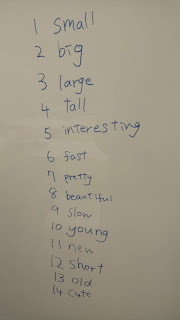 1 small
2 big
3 large
4 tall
5 interesting
6 fast
7 pretty
8 beautiful
9 slow
10 young
11 new
12 short
13 old
14 cute